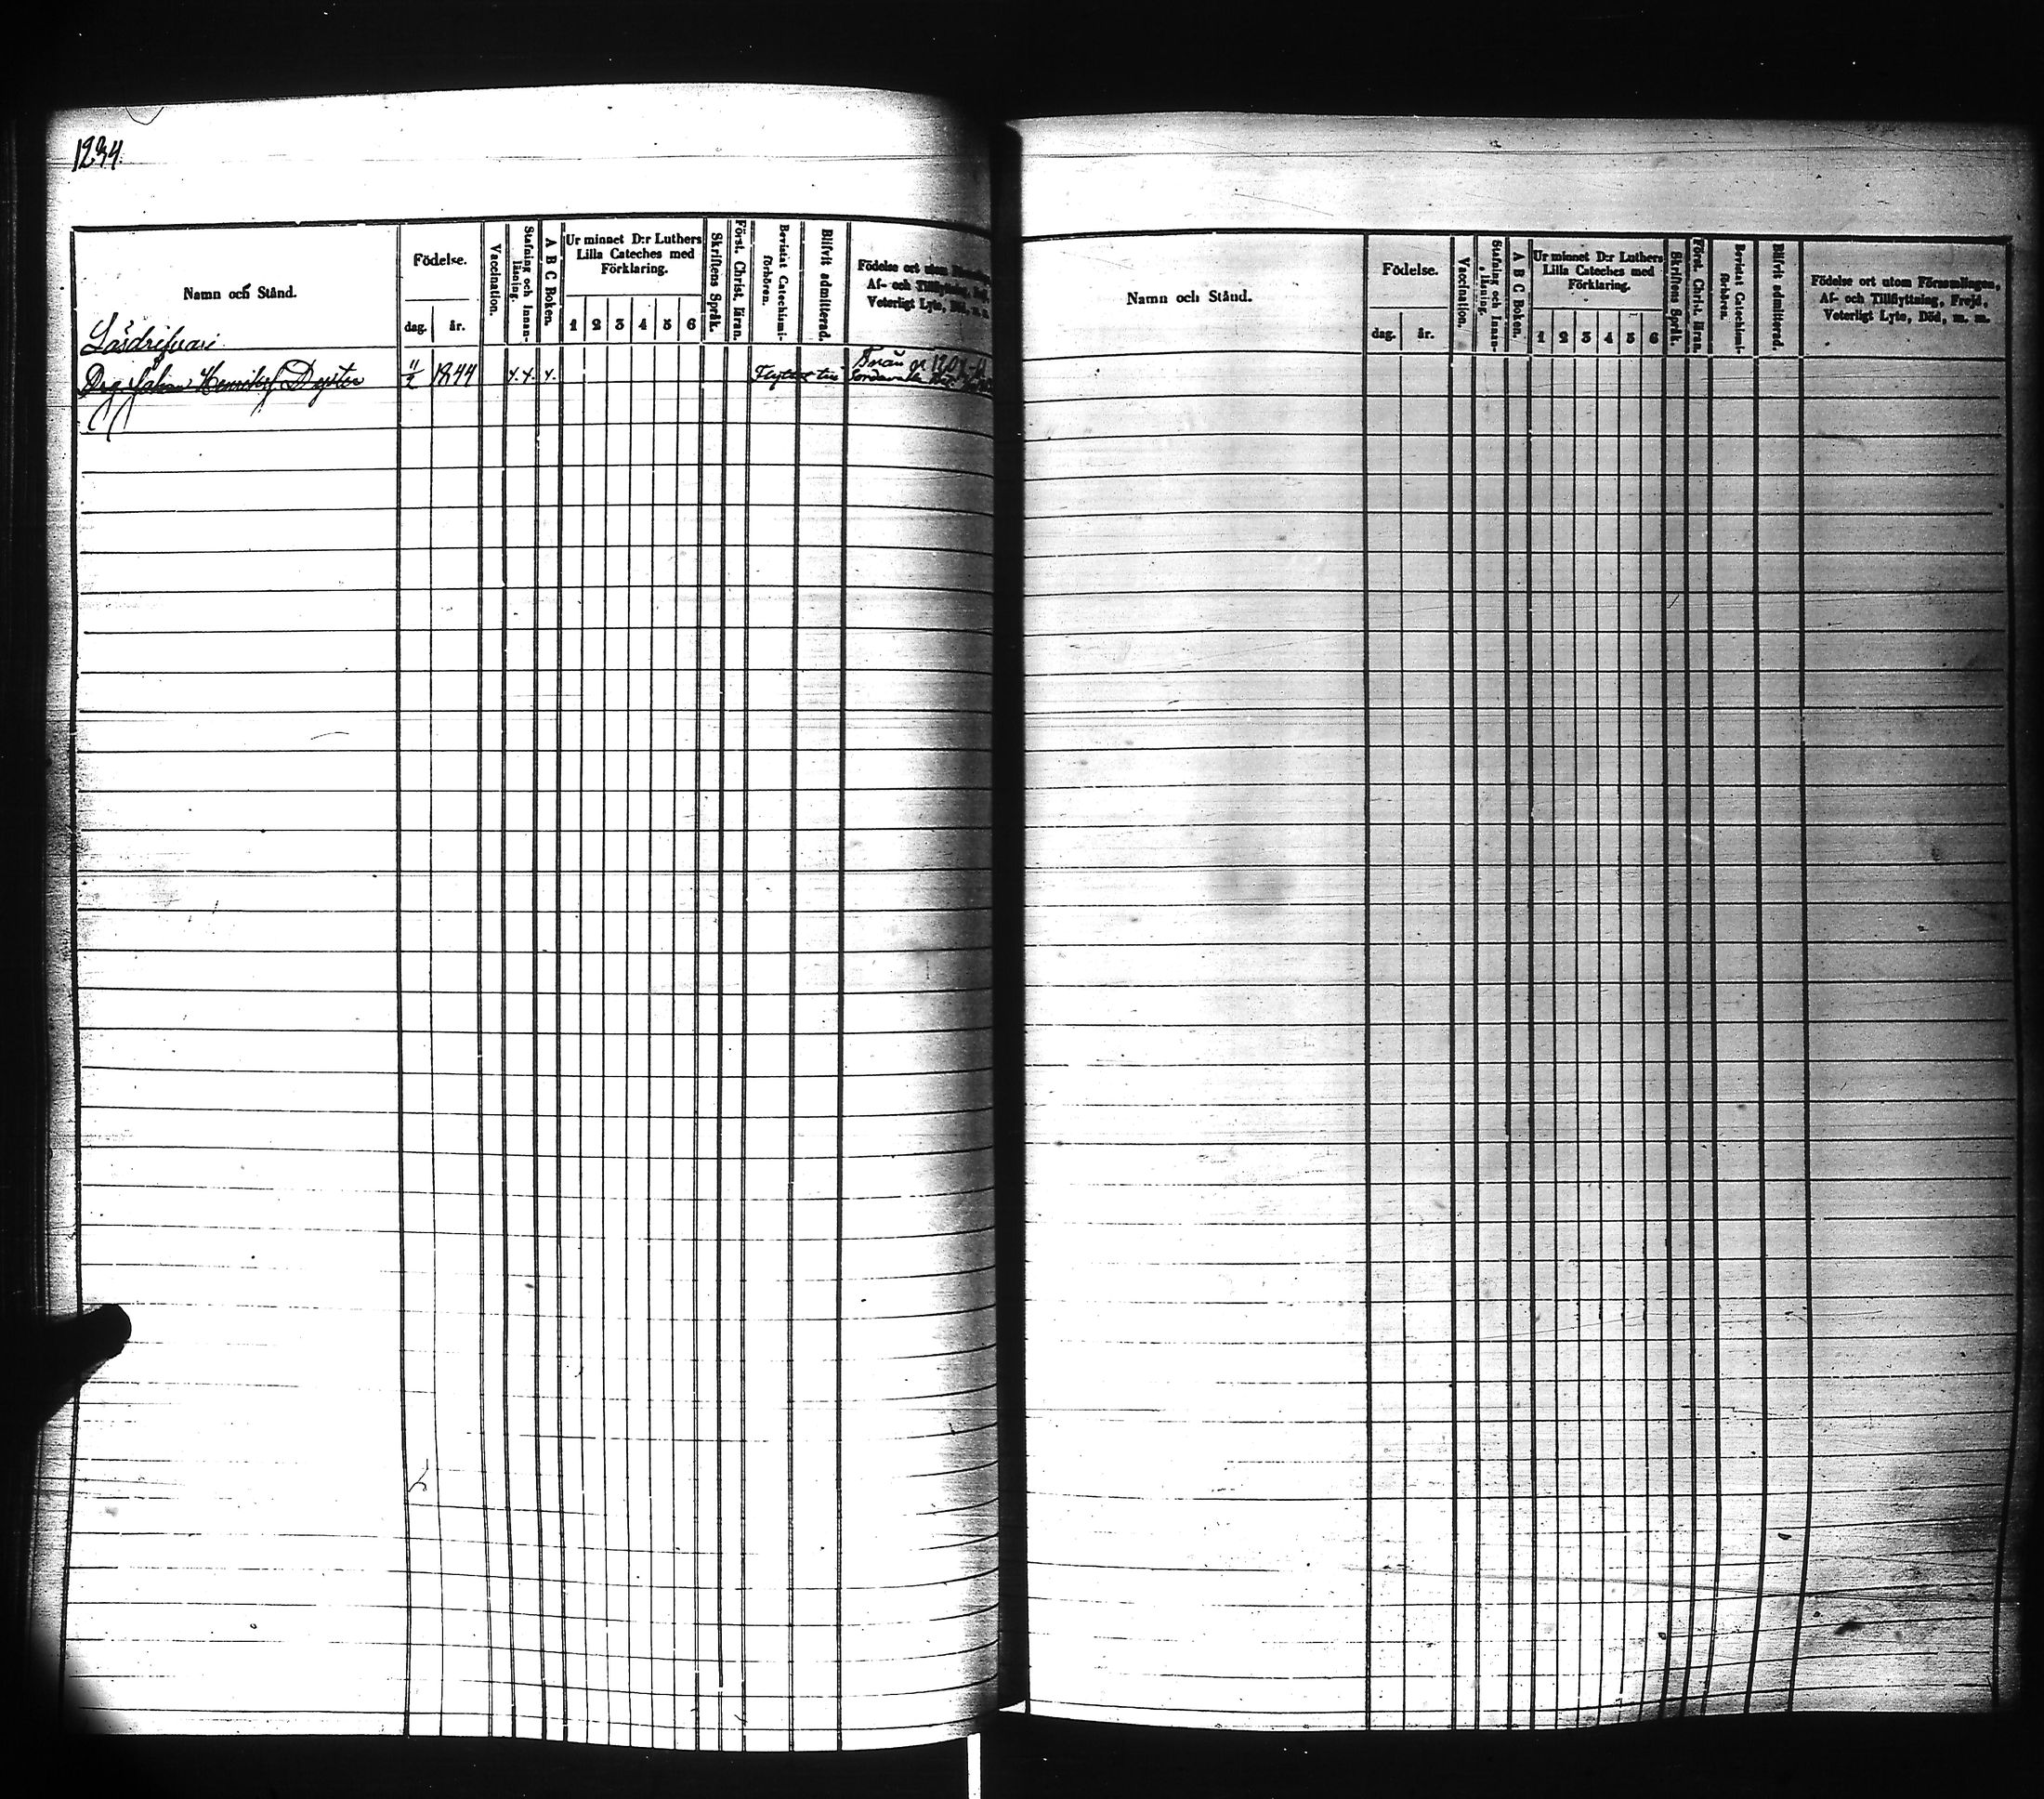 1234.
Namn och Stånd.
Födelse.
dag.
år.
Vaccination.
Stafning och Innan-
läsning.
A B C Boken.
Ur minnet D:r Luthers
Lilla Cateches med
Förklaring.
1 2 3 4 5 6
Skriftens Språk.
Först. Christ. läran.
Bevistat Catechismi-
förhören.
Blifvit admitterad.
Födelse ort utom
Af- och Tillflyttning,
Veterligt Lyte, Död, m. m.
Från
Johan Henrik 11/2 1844 x. x. x. Flyttat till Sordavala
Namn och Stånd.
Födelse.
dag.
år.
Vaccination.
Stafning och Innan-
läsning.
A B C Boken.
Ur minnet D:r Luthers
Lilla Cateches med
Förklaring.
1 2 3 4 5 6
Skriftens Språk.
Först. Christ. läran.
Bevistat Catechismi-
förhören.
Blifvit admitterad.
Födelse ort utom Församlingen,
Af- och Tillflyttning, Frejd,
Veterligt Lyte, Död, m. m.